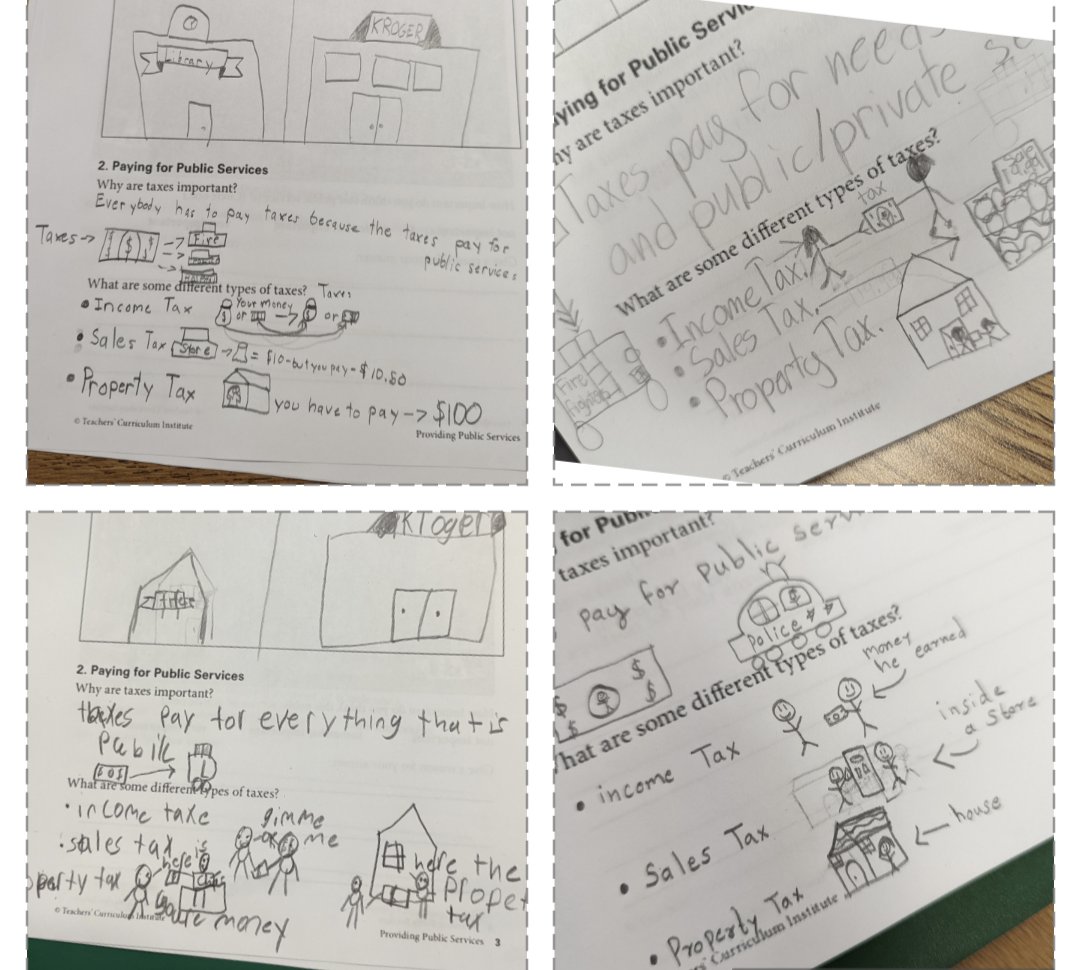 Library
KROGER
2. Paying for Public Services
Why are taxes important?
Everybody has to pay taxes because the taxes pay for
public services
Taxes → $ $ $ → Fire
What are some different types of taxes? Taxes
• Income Tax $ or Your money → $ or
• Sales Tax Store → = $10-but you pay = $10.50
• Property Tax you have to pay → $100
© Teachers' Curriculum Institute
Providing Public Services
ying for Public Servic
hy are taxes important?
Taxes pay for needs
and public/private
What are some different types of taxes?
tax
Sale
• Income Tax.
• Sales Tax.
• Property Tax.
Fire
Fighters
© Teachers' Curriculum Institute
Kroger
2. Paying for Public Services
Why are taxes important?
taxes pay for everything that is
Pubilc
What are some different types of taxes?
• income taxe
• sales tax
perty tax
here is
money
gimme
me
here the
Proper
tax
© Teachers' Curriculum Institute
Providing Public Services 3
for Publi
taxes important?
pay for public serv
Police
$
$
$
hat are some different types of taxes?
money
he earned
• income Tax
inside
a store
• Sales Tax
house
• Property Tax
ers' Curriculum Institute